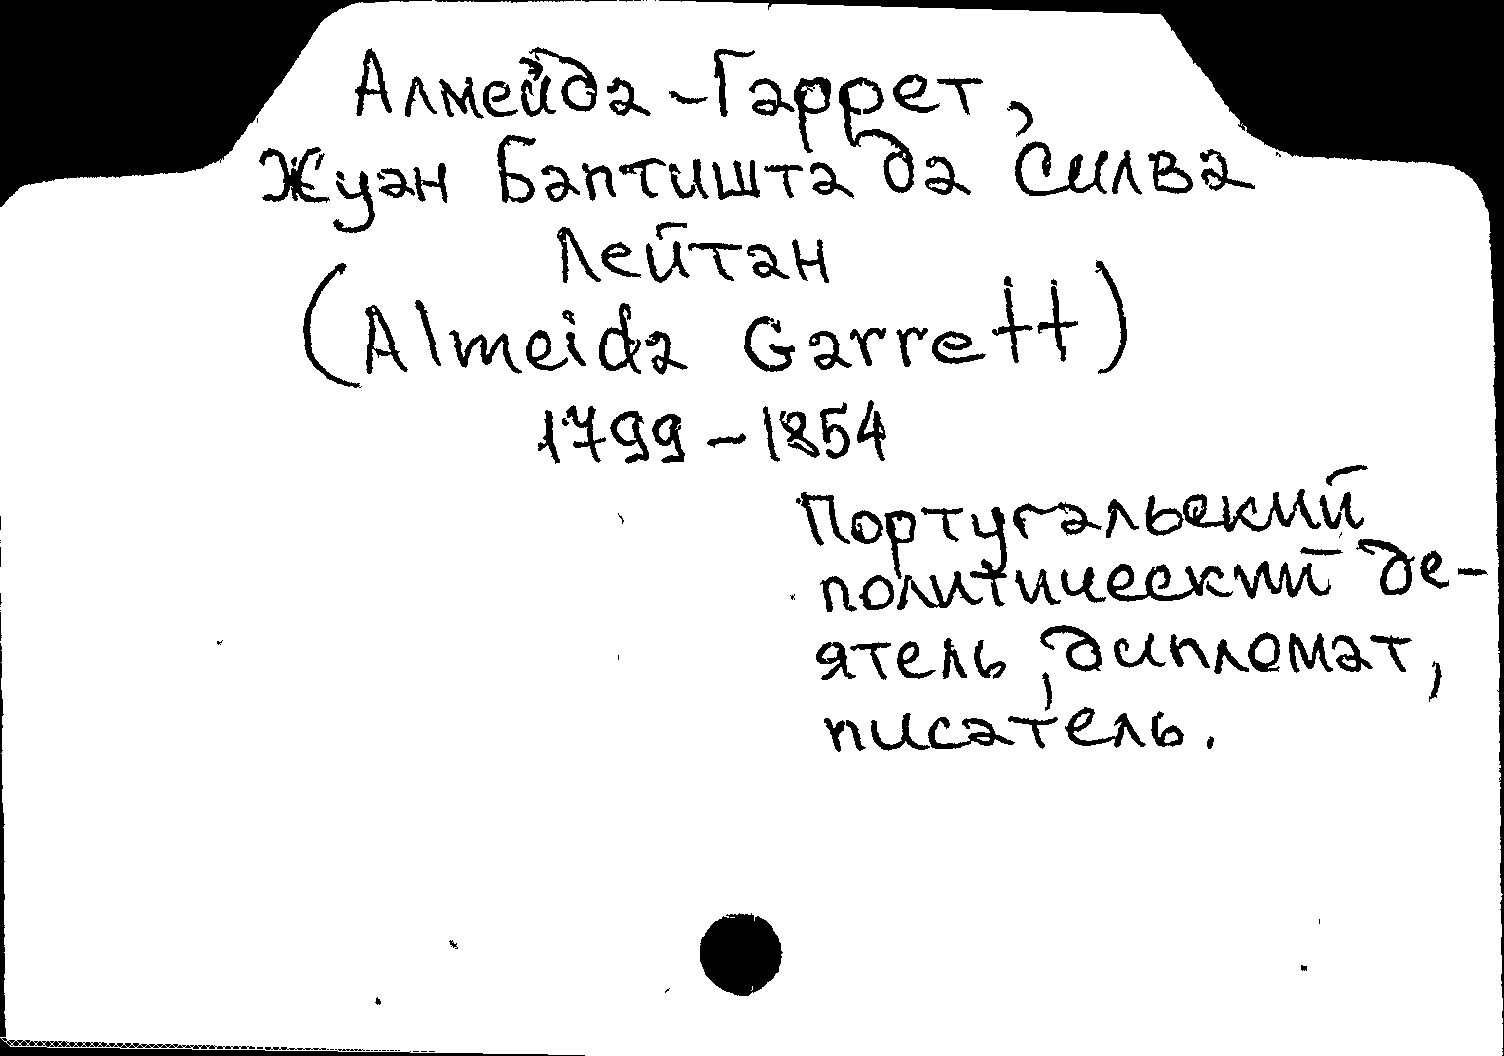 Алмейда-Гаррет,
Жуан Баптишта да Силва
Лейтан
(Almeida Garrett)
1799-1854
Португальский
политический де-
ятель, дипломат,
писатель.